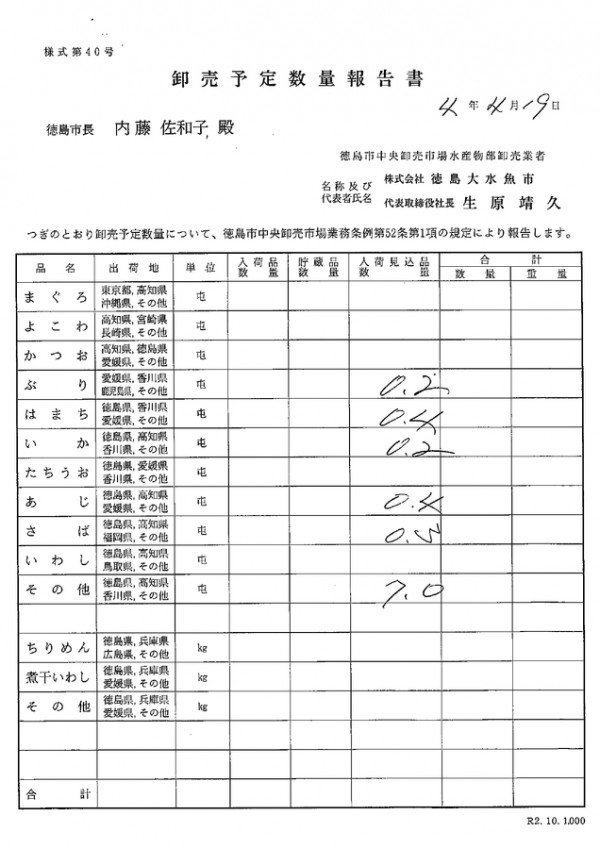 様式第40号
卸売予定数量報告書
4年4月19日
徳島市長 内藤 佐和子 殿
徳島市中央卸売市場水産物部卸売業者
名称及び 株式会社 徳島大水魚市
代表者氏名 代表取締役社長 生原靖久
つぎのとおり卸売予定数量について、徳島市中央卸売市場業務条例第52条第1項の規定により報告します。
品名 出荷地 単位 入荷品数量 貯蔵品数量 入荷見込品数量 合計
数量 重量
まぐろ 東京都, 高知県 屯
沖縄県, その他
よこわ 高知県, 宮崎県 屯
長崎県, その他
かつお 高知県, 徳島県 屯
愛媛県, その他
ぶり 愛媛県, 香川県 屯 0.2
鹿児島県, その他
はまち 徳島県, 香川県 屯 0.4
愛媛県, その他
いか 徳島県, 高知県 屯 0.2
香川県, その他
たちうお 徳島県, 愛媛県 屯
香川県, その他
あじ 徳島県, 高知県 屯 0.4
愛媛県, その他
さば 徳島県, 高知県 屯 0.5
福岡県, その他
いわし 徳島県, 高知県 屯
鳥取県, その他
その他 徳島県, 高知県 屯 7.0
香川県, その他
ちりめん 徳島県, 兵庫県 kg
広島県, その他
煮干いわし 徳島県, 兵庫県 kg
愛媛県, その他
その他 徳島県, 兵庫県 kg
愛媛県, その他
合計
R2. 10. 1,000